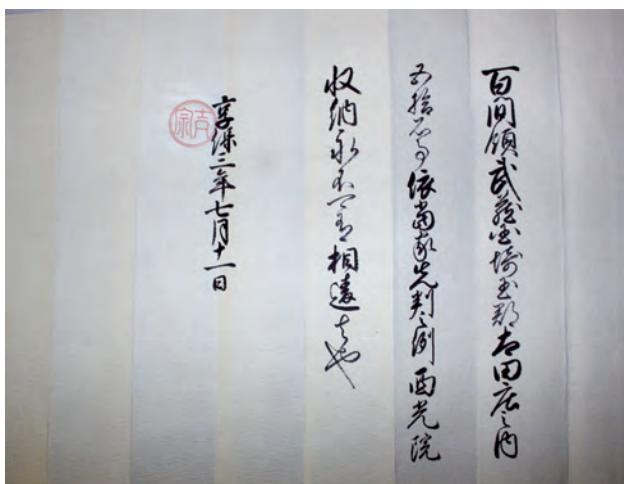 百間領武蔵国埼玉郡太田庄之内
五拾石事依當家先判之例西光院
収納永不可有相違者也
享保三年七月十一日
吉宗